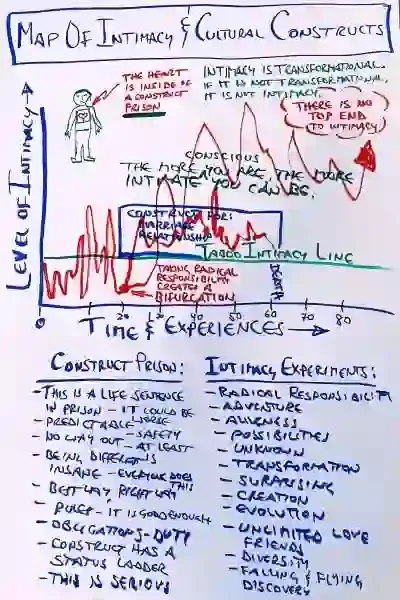 MAP OF INTIMACY & CULTURAL CONSTRUCTS
THE HEART
IS INSIDE OF
A CONSTRUCT
PRISON
INTIMACY IS TRANSFORMATIONAL.
IF IT IS NOT TRANSFORMATIONAL,
IT IS NOT INTIMACY.
THERE IS NO
TOP END
TO INTIMACY
LEVEL OF INTIMACY
CONSCIOUS
THE MORE YOU ARE, THE MORE
INTIMATE YOU CAN BE.
CONSTRUCT FOR:
MARRIAGE
RELATIONSHIP
TABOO INTIMACY LINE
TAKING RADICAL
RESPONSIBILITY
CREATES A
BIFURCATION
DEATH
0 20 30 40 50 60 70 80
TIME & EXPERIENCES
CONSTRUCT PRISON:
- THIS IS A LIFE SENTENCE
IN PRISON - IT COULD BE
WORSE
- PREDICTABLE - SAFETY
- NO WAY OUT - AT LEAST
- BEING DIFFERENT IS
INSANE - EVERYONE DOES
THIS
- BEST WAY RIGHT WAY
- RULES - IT IS GOOD ENOUGH
- OBLIGATIONS - DUTY
- CONSTRUCT HAS A
STATUS LADDER
- THIS IS SERIOUS
INTIMACY EXPERIMENTS:
- RADICAL RESPONSIBILITY
- ADVENTURE
- ALIVENESS
- POSSIBILITIES
- UNKNOWN
- TRANSFORMATION
- SURPRISING
- CREATION
- EVOLUTION
- UNLIMITED LOVE
FRIENDS
- DIVERSITY
- FALLING & FLYING
DISCOVERY